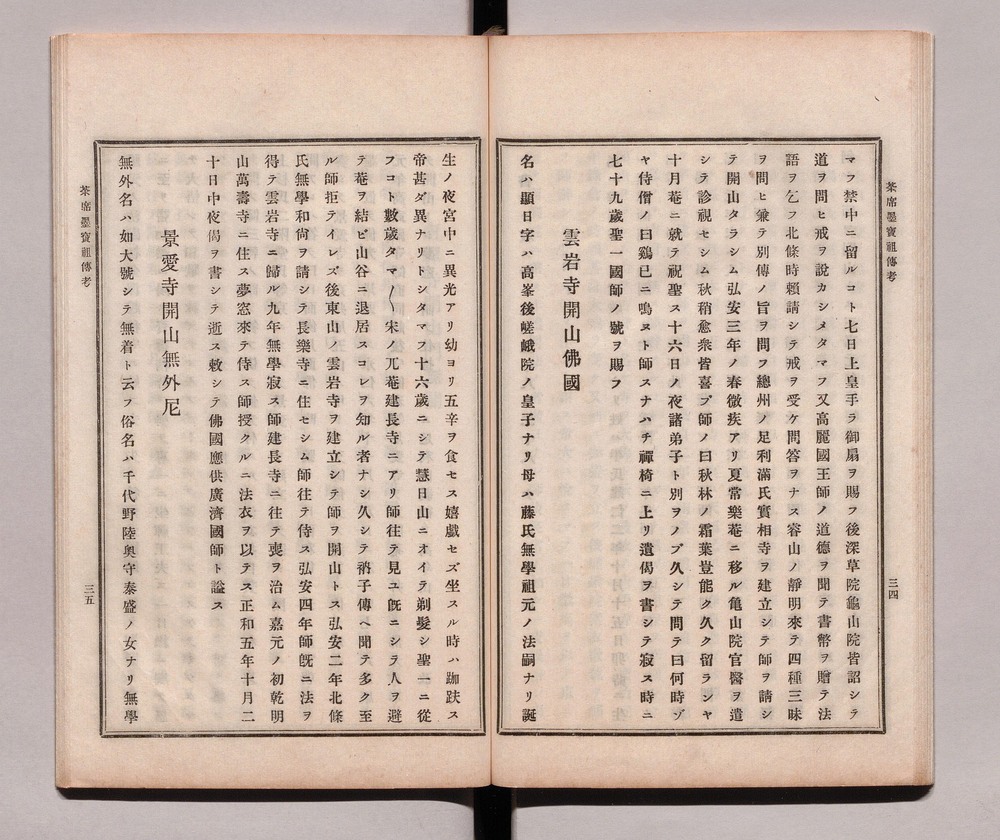 茶席墨寶祖傳考
三四
マフ禁中ニ留ルコト七日上皇手ラ御扇ヲ賜フ後深草院龜山院皆詔シテ
道ヲ問ヒ戒ヲ說カシメタマフ又高麗國王師ノ道德ヲ聞テ書幣ヲ贈テ法
語ヲ乞フ北條時賴請シテ戒ヲ受ケ問答ヲナス睿山ノ靜明來テ四種三昧
ヲ問ヒ兼テ別傳ノ旨ヲ問フ總州ノ足利滿氏實相寺ヲ建立シテ師ヲ請シ
テ開山タラシム弘安三年ノ春微疾アリ夏常樂菴ニ移ル亀山院官醫ヲ遣
シテ診視セシム秋稍愈衆皆喜ブ師ノ曰秋林ノ霜葉豈能ク久ク留ランヤ
十月菴ニ就テ祝聖ス十六日ノ夜諸弟子ト別ヲノブ久シテ問テ曰何時ゾ
ヤ侍僧ノ曰鷄已ニ鳴ヌト師スナハチ禪椅ニ上リ遺偈ヲ書シテ寂ス時ニ
七十九歲聖一國師ノ號ヲ賜フ
雲岩寺開山佛國
名ハ顯日字ハ高峯後嵯峨院ノ皇子ナリ母ハ藤氏無學祖元ノ法嗣ナリ誕
生ノ夜宮中ニ異光アリ幼ヨリ五辛ヲ食セス嬉戲セズ坐スル時ハ跏趺ス
帝甚ダ異ナリトシタマフ十六歲ニシテ慧日山ニオイラ剃髮シ聖一ニ從
フコト數歲タマ〱宋ノ兀菴建長寺ニアリ師往テ見ユ旣ニシラ人ヲ避
テ菴ヲ結ビ山谷ニ退居スコレヲ知ル者ナシ久シテ衲子傳ヘ聞テ多ク至
ル師拒テイレズ後東山ノ雲岩寺ヲ建立シテ師ヲ開山トス弘安二年北條
氏無學和尙ヲ請シテ長樂寺ニ住セシム師往テ侍ス弘安四年師旣ニ法ヲ
得テ雲岩寺ニ歸ル九年無學寂ス師建長寺ニ往テ喪ヲ治ム嘉元ノ初乾明
山萬壽寺ニ住ス夢窓來テ侍ス師授クルニ法衣ヲ以テス正和五年十月二
十日中夜偈ヲ書シテ逝ス敕シテ佛國應供廣濟國師ト謚ス
景愛寺開山無外尼
無外名ハ如大號シテ無着ト云フ俗名ハ千代野陸奥守泰盛ノ女ナリ無學
茶席墨寶祖傳考
三五